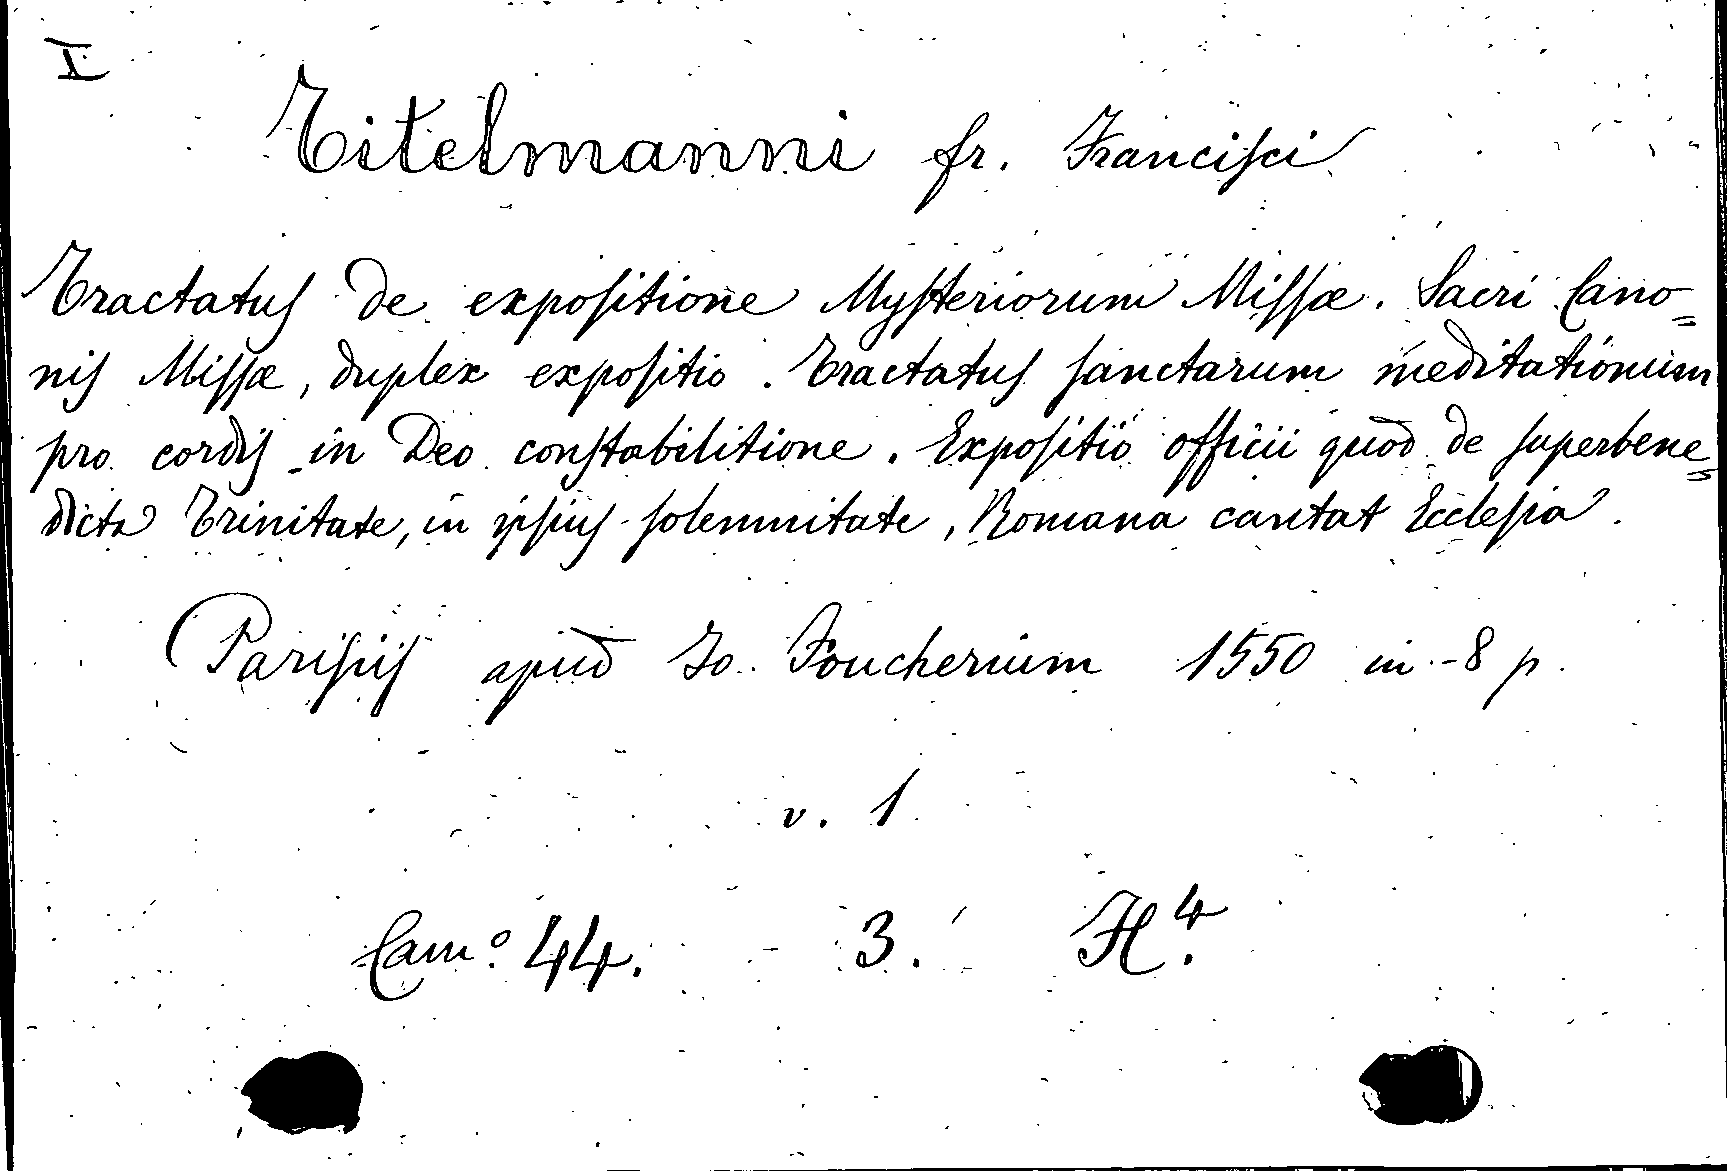 I
Titelmanni fr. Francisci
Tractatus de expositione Mysteriorum Missæ. Sacri Cano=
nis Missæ, duplex expositio. Tractatus sanctarum meditationum
pro cordis in Deo constabilitione. Expositio officii quod de superbene=
dicta Trinitate, in ipsius solemnitate, Romana cantat Ecclesia.
Parisiis apud Jo. Foucherium 1550 in-8 p.
v. 1
Camº 44. 3. H⁴.